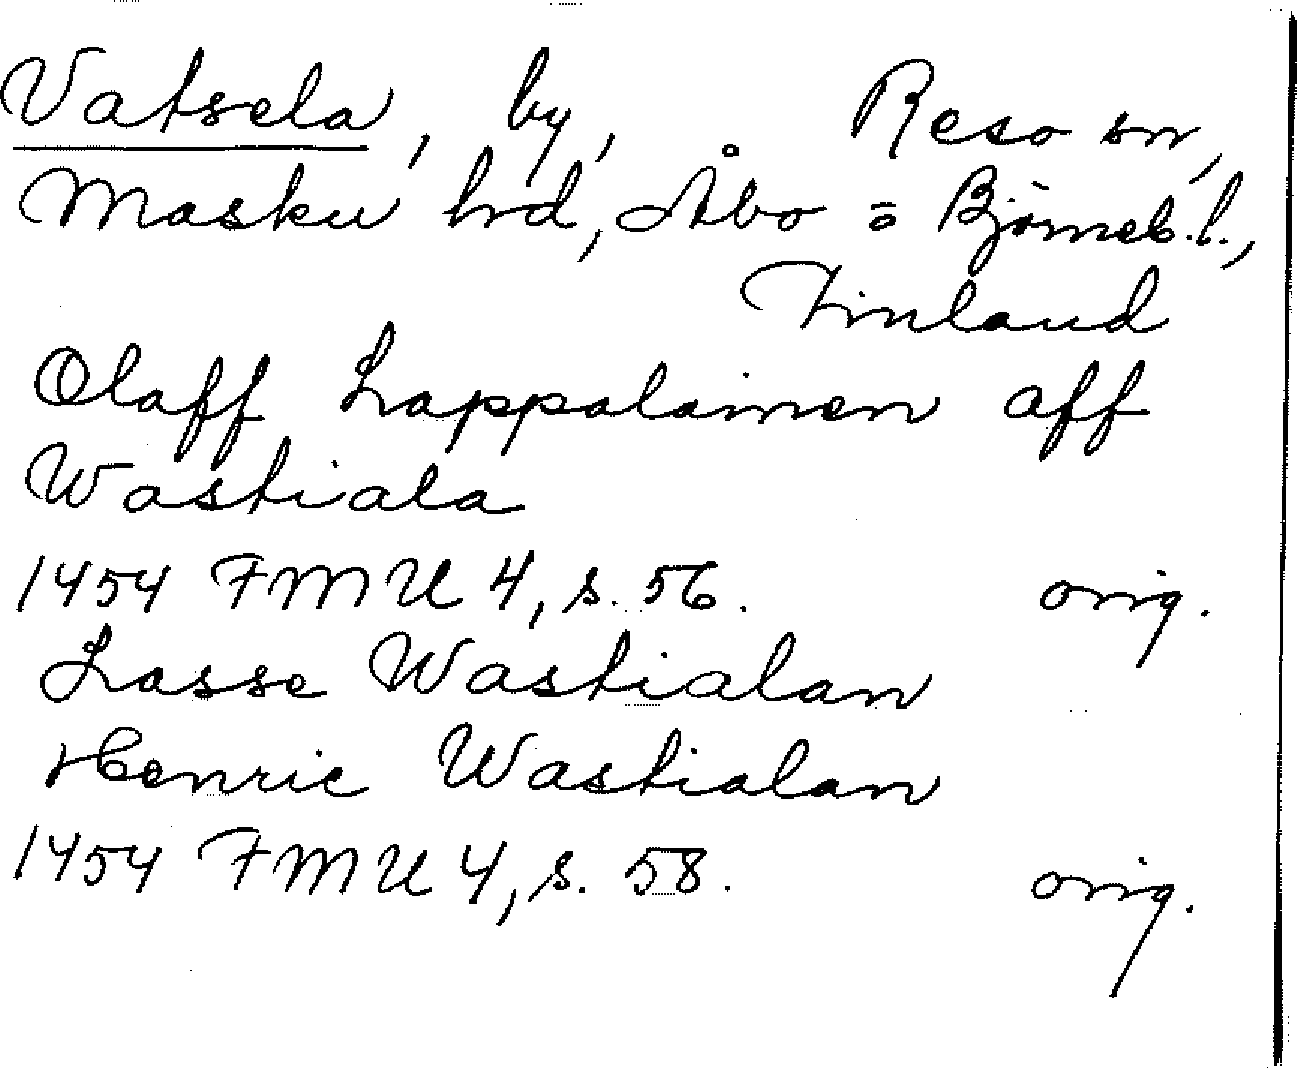 Vatsela, by, Reso sn,
Masku hrd, Åbo = Björneb. l.,
Finland
Olaff Lappalainen aff
Wastiala
1454 FMU 4, s. 56. orig.
Lasse Wastialan
Henric Wastialan
1454 FMU 4, s. 58. orig.